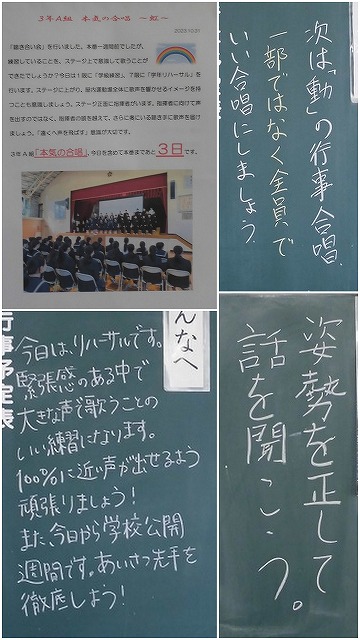 3年A組　本気の合唱　～虹～
2022.10.31
「聴き合い会」を行いました。本番一週間前でしたが、
練習していることを、ステージ上で意識して歌うことが
できたでしょうか？今日は1限に「学級練習」、7限に「学年リハーサル」を
行います。ステージに上がり、屋内運動場全体に歌声を響かせるイメージを持
つことも意識しましょう。ステージ正面に指揮者がいます。指揮者に向けて声
を出すのではなく、指揮者の頭を越えて、さらに奥にいる聴き手に歌声を届け
ましょう。「遠くへ声を飛ばす」意識が大切です。
3年A組「本気の合唱」、今日を含めて本番まであと3日です。
次は「動」の行事合唱。
一部ではなく全員で
いい合唱にしましょう。
行事予定表
んなへ
今日は、リハーサルです。
緊張感のある中で
大きな声で歌うことの
いい練習になります。
100%に近い声が出せるよう
頑張りましょう！
また、今日から学校公開
週間です。あいさつ先手を
徹底しよう！
姿勢を正して
話を聞こう。